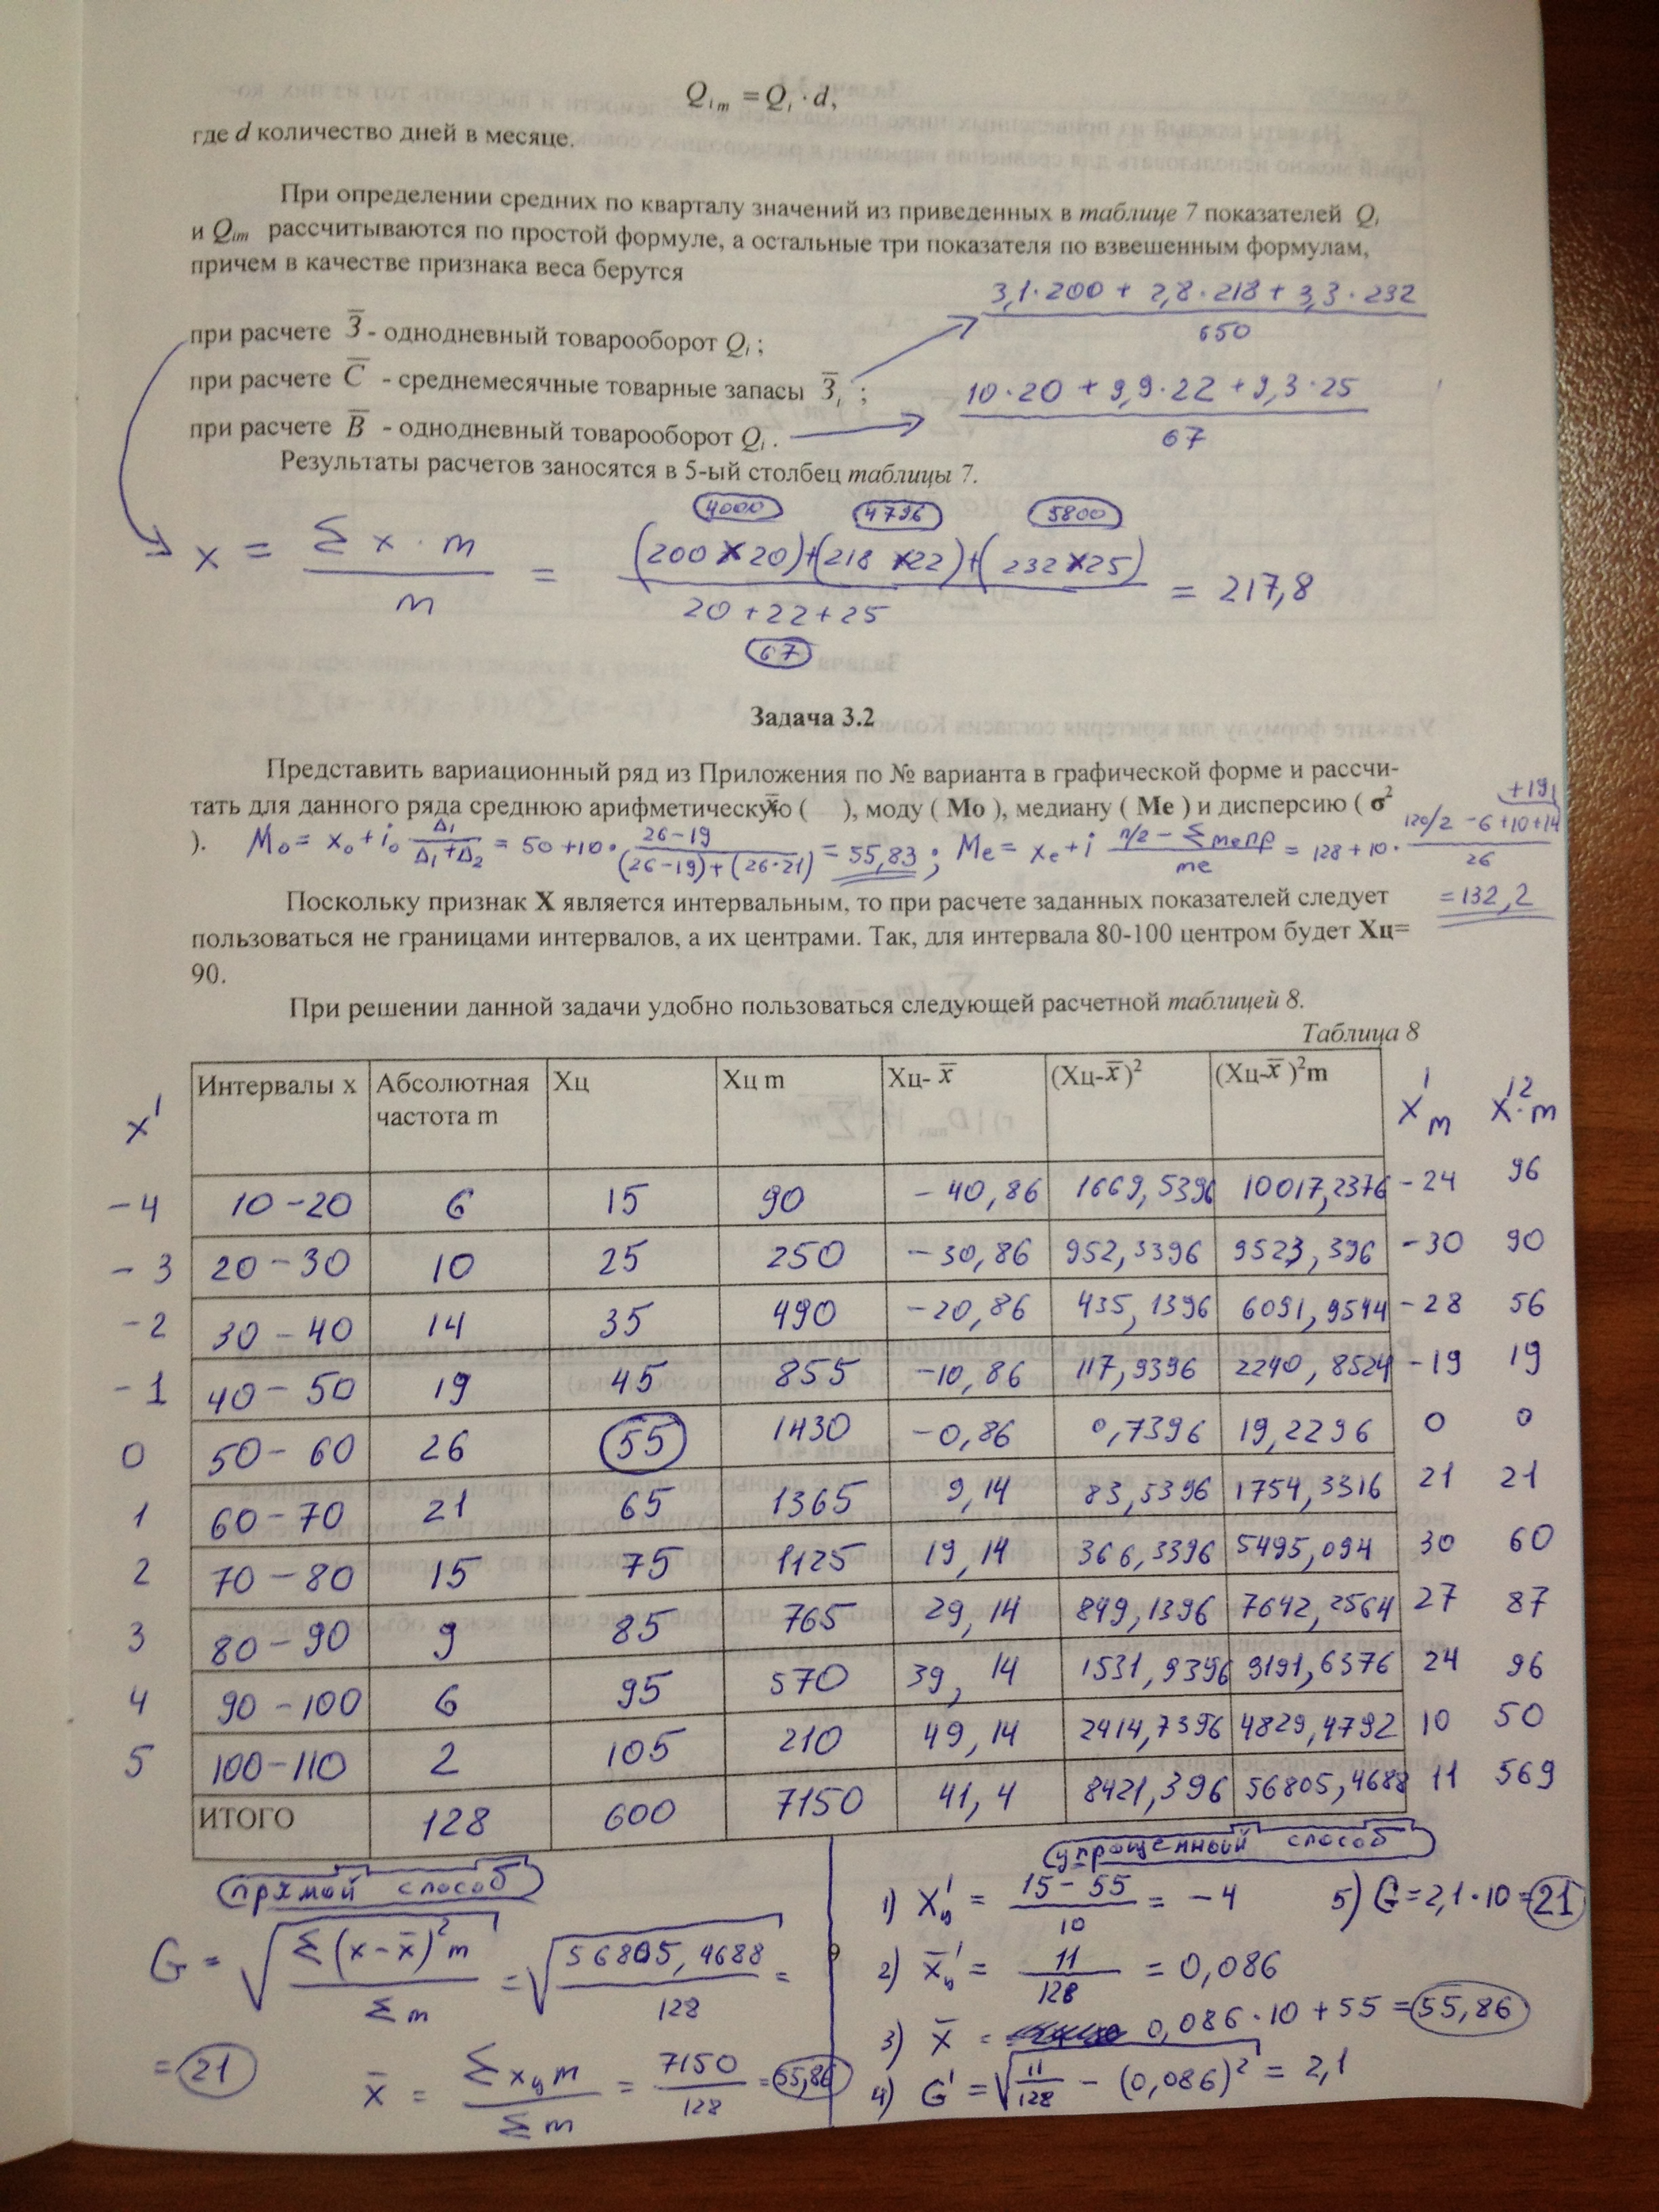 Q i m = Q i · d,
где d количество дней в месяце.
При определении средних по кварталу значений из приведенных в таблице 7 показателей Q i
и Q im рассчитываются по простой формуле, а остальные три показателя по взвешенным формулам,
причем в качестве признака веса берутся
3,1·200 + 2,8·218 + 3,3·232 / 650
при расчете З̅ - однодневный товарооборот Q i ;
при расчете С̅ - среднемесячные товарные запасы З̅ i ;
10·20 + 9,9·22 + 9,3·25 / 67
при расчете В̅ - однодневный товарооборот Q i .
Результаты расчетов заносятся в 5-ый столбец таблицы 7.
4000 4796 5800
x = Σ x · m / m = (200 x 20)+(218 x22)+(232x25) / 20+22+25 = 217,8
67
Задача 3.2
Представить вариационный ряд из Приложения по № варианта в графической форме и рассчи-
тать для данного ряда среднюю арифметическую ( x̅ ), моду ( Мо ), медиану ( Ме ) и дисперсию ( σ²
).
Mo = xo + io Δ1 / Δ1+Δ2 = 50+10· 26-19 / (26-19)+(26-21) = 55,83 ; Me = xe + i n/2 - Σ me пр / me = 128 + 10 · 120/2 -6+10+14 +19 / 26
= 132,2
Поскольку признак X является интервальным, то при расчете заданных показателей следует
пользоваться не границами интервалов, а их центрами. Так, для интервала 80-100 центром будет Хц=
90.
При решении данной задачи удобно пользоваться следующей расчетной таблицей 8.
Таблица 8
x' Интервалы x Абсолютная частота m Хц Хц m Хц- x̅ (Хц-x̅)² (Хц-x̅)²m x'm x'²·m
-4 10-20 6 15 90 -40,86 1669,5396 10017,2376 -24 96
-3 20-30 10 25 250 -30,86 952,3396 9523,396 -30 90
-2 30-40 14 35 490 -20,86 435,1396 6091,9544 -28 56
-1 40-50 19 45 855 -10,86 117,9396 2240,8524 -19 19
0 50-60 26 55 1430 -0,86 0,7396 19,2296 0 0
1 60-70 21 65 1365 9,14 83,5396 1754,3316 21 21
2 70-80 15 75 1125 19,14 366,3396 5495,094 30 60
3 80-90 9 85 765 29,14 849,1396 7642,2564 27 87
4 90-100 6 95 570 39,14 1531,9396 9191,6376 24 96
5 100-110 2 105 210 49,14 2414,7396 4829,4792 10 50
ИТОГО 128 600 7150 41,4 8421,396 56805,4688 11 569
прямой способ
G = √ Σ (x-x̅)² m / Σ m = √ 56805,4688 / 128 =
= 21
x̅ = Σ xц m / Σ m = 7150 / 128 = 55,86
упрощенный способ
1) Xц' = 15-55 / 10 = -4
5) G = 2,1·10 = 21
2) x̅ц' = 11 / 128 = 0,086
3) x̅ = 0,086·10 + 55 = 55,86
4) G' = √ 11 / 128 - (0,086)² = 2,1